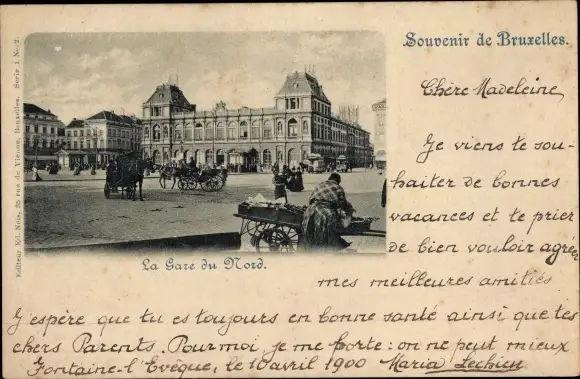 Souvenir de Bruxelles.
Editeur Ed. Nels, 35 rue de Vienne, Bruxelles. Serie 1 No. 2.
Chère Madeleine
Je viens te sou-
haiter de bonnes
vacances et te prier
de bien vouloir agréer
mes meilleures amitiés
La Gare du Nord.
J'espère que tu es toujours en bonne santé ainsi que tes
chers Parents. Pour moi je me porte : on ne peut mieux
Fontaine-l'Evêque, le 10 avril 1900 Maria Lechien